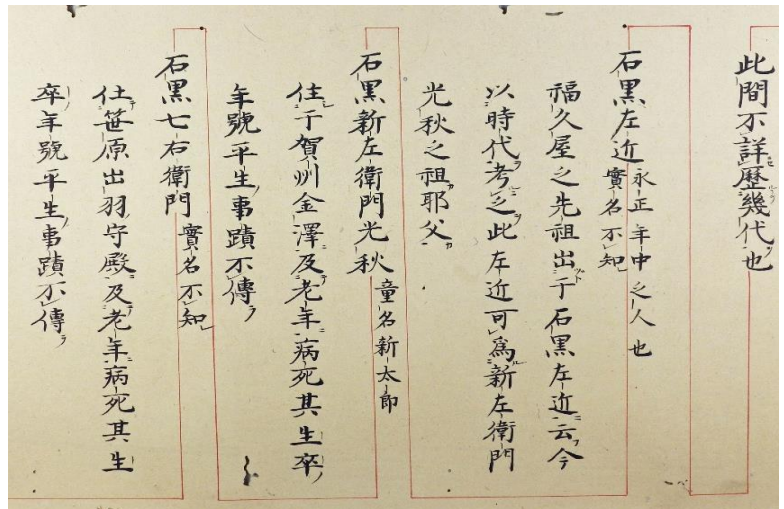 此間不詳歷幾代也
石黒左近 永正年中之人也
實名不知
福久屋之先祖出于石黒左近云今
以時代考之此左近可爲新左衛門
光秋之祖耶父
石黒新左衛門光秋 童名新太郎
住于賀州金澤及老年病死其生卒
年號平生事蹟不傳
石黒七右衛門 實名不知
仕笹原出羽守殿及老年病死其生
卒年號平生事蹟不傳